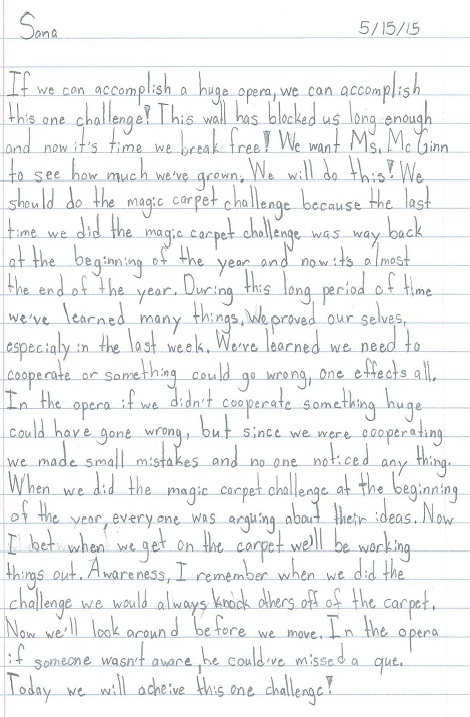 Sana 5/15/15
If we can accomplish a huge opera, we can accomplish
this one challenge! This wall has blocked us long enough
and now it's time we break free! We want Ms. McGinn
to see how much we've grown. We will do this! We
should do the magic carpet challenge because the last
time we did the magic carpet challenge was way back
at the beginning of the year and now its almost
the end of the year. During this long period of time
we've learned many things. We proved our selves,
especialy in the last week. We've learned we need to
cooperate or something could go wrong, one effects all.
In the opera if we didn't cooperate something huge
could have gone wrong, but since we were cooperating
we made small mistakes and no one noticed any thing.
When we did the magic carpet challenge at the beginning
of the year, every one was arguing about their ideas. Now
I bet when we get on the carpet we'll be working
things out. Awareness, I remember when we did the
challenge we would always knock others off of the carpet.
Now we'll look around before we move. In the opera
if someone wasn't aware, he could've missed a que.
Today we will acheive this one challenge!